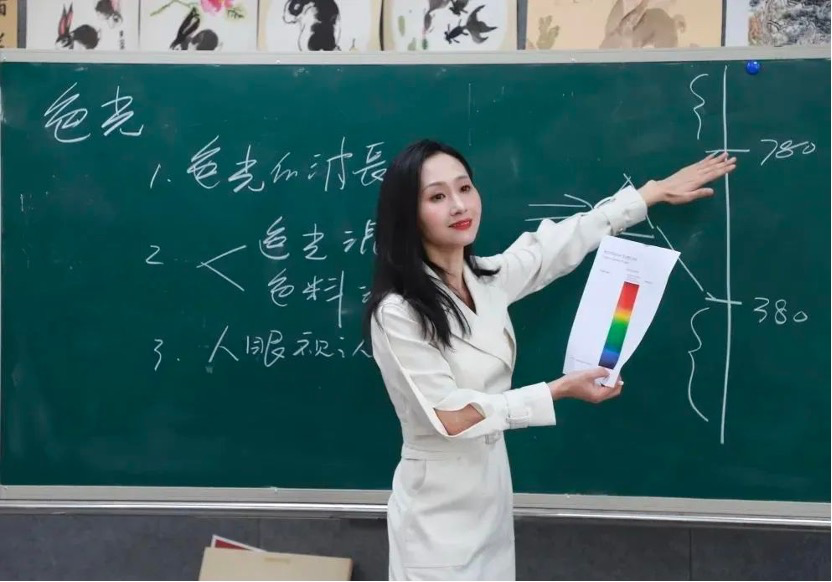 色光
1. 色光的波長
2 色光混
色料
3. 人眼视认
780
380